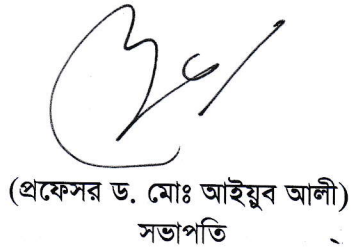 (প্রফেসর ড. মোঃ আইয়ুব আলী)
সভাপতি